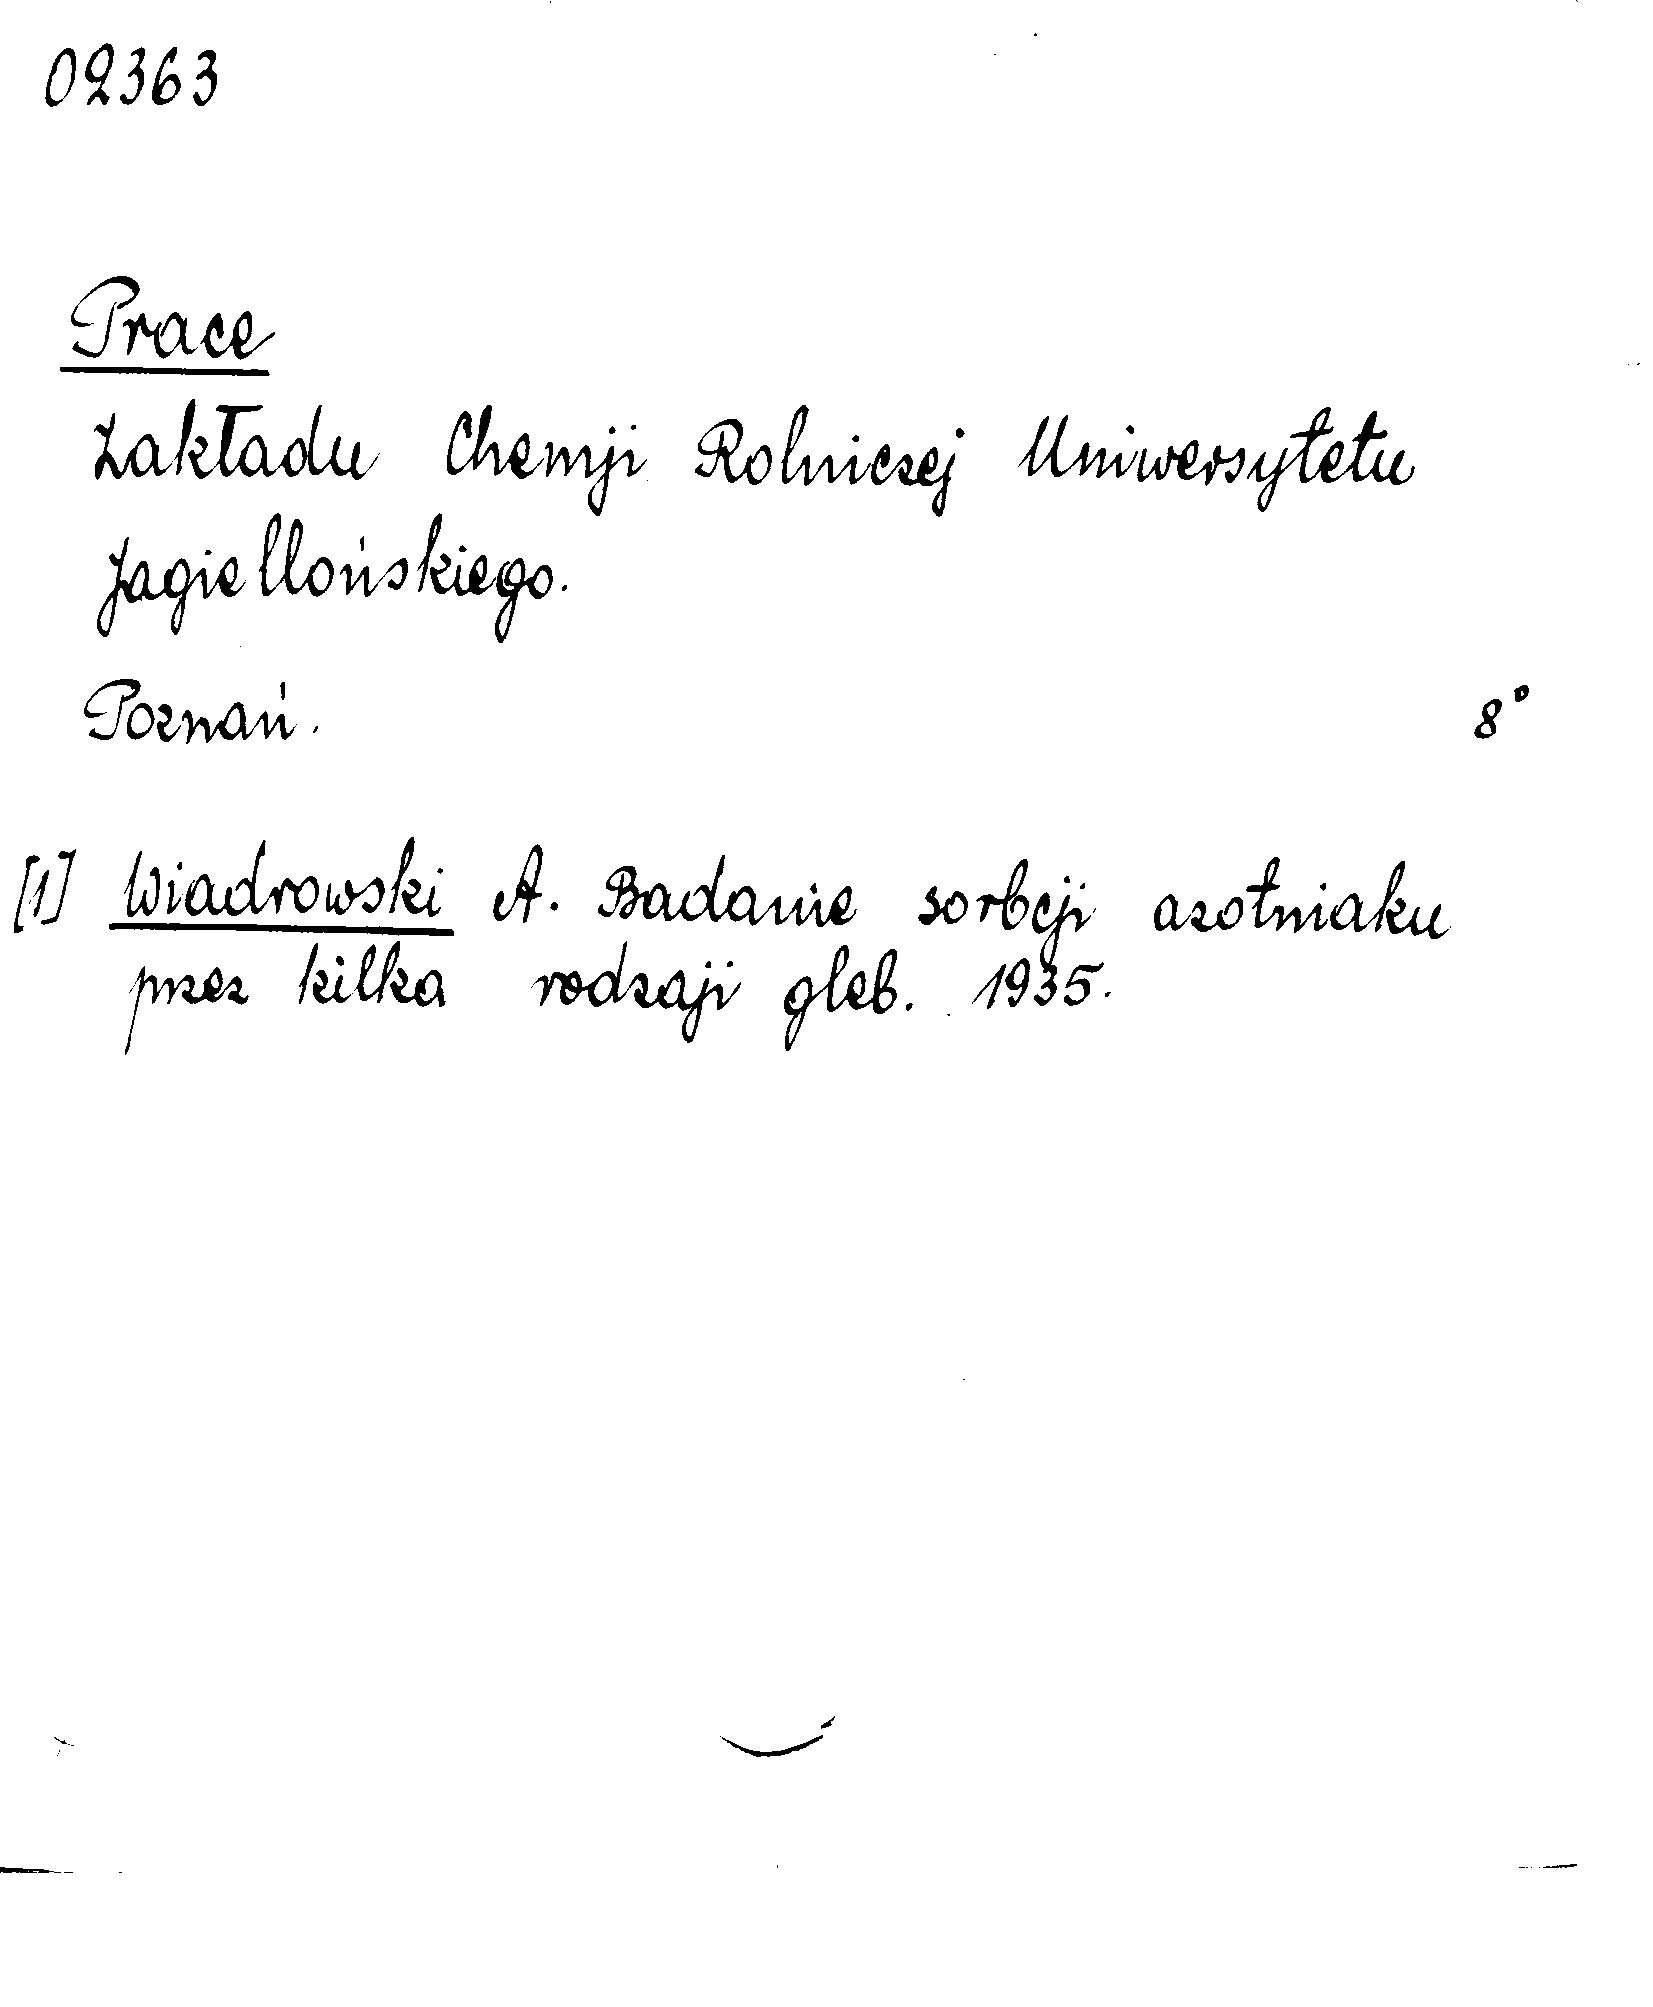 02363
Prace
Zakładu Chemji Rolniczej Uniwersytetu
Jagiellońskiego.
Poznań. 8°
[1] Wiadrowski A. Badanie sorbcji azotniaku
przez kilka rodzaji gleb. 1935.